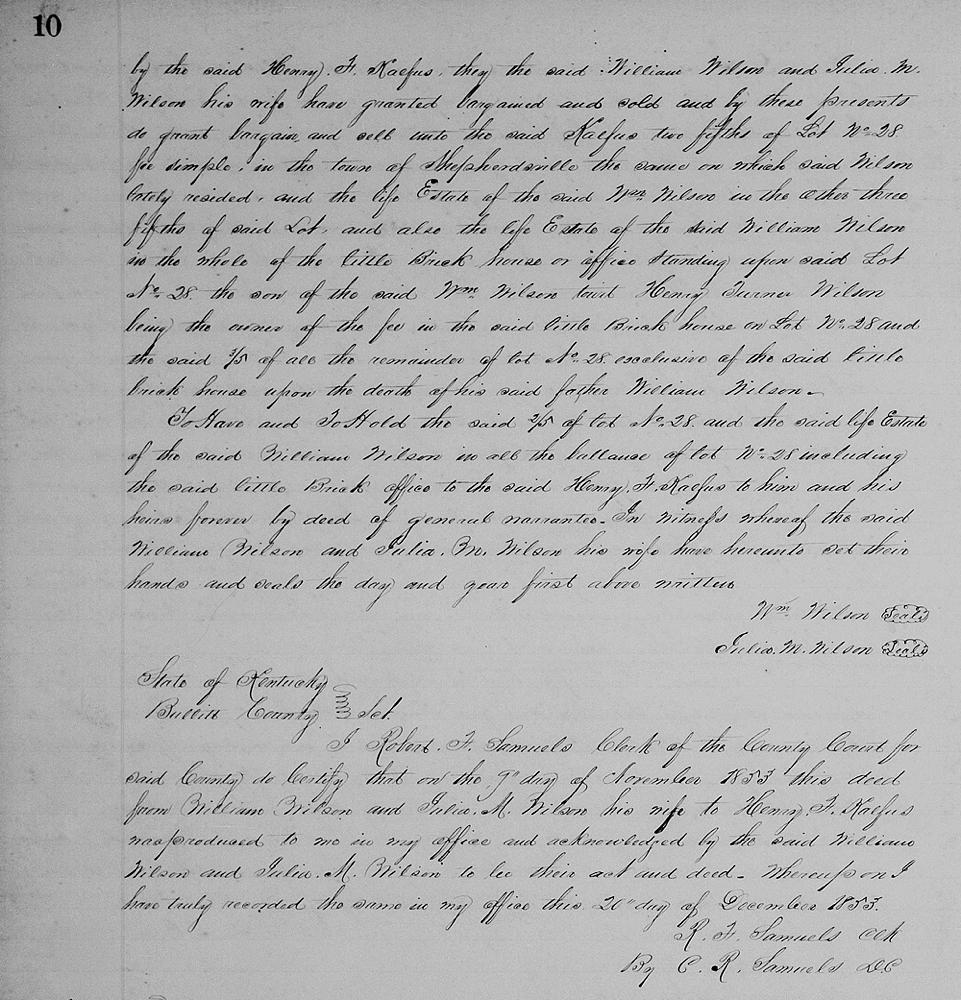 10
by the said Henry. F. Kaefus, they the said William Wilson and Julia. M.
Wilson his wife have granted bargained and sold and by these presents
do grant bargain, and sell unto the said Kaefus two fifths of Lot No. 28
fee simple, in the town of Shepherdsville the same on which said Wilson
lately resided, and the life Estate of the said Wm. Wilson in the other three
fifths of said Lot, and also the life Estate of the said William Wilson
in the whole of the little Brick house or office standing upon said Lot
No. 28. the son of the said Wm. Wilson towit Henry Turner Wilson
being the owner of the fee in the said little Brick house on Lot No. 28 and
the said 3/5 of all the remainder of lot No. 28. exclusive of the said little
brick house upon the death of his said father William Wilson.
To Have and To Hold the said 2/5 of lot No. 28. and the said life Estate
of the said William Wilson in all the ballance of lot No. 28 including
the said little Brick office to the said Henry. F. Kaefus to him and his
heirs forever by deed of general warrantee. In witness whereof the said
William Wilson and Julia. M. Wilson his wife have hereunto set their
hands and seals the day and year first above written
Wm. Wilson Seal
Julia. M. Wilson Seal
State of Kentucky
Bullitt County } Sct.
I Robert. F. Samuels Clerk of the County Court for
said County do Certify that on the 9" day of November 1853 this deed
from William Wilson and Julia. M. Wilson his wife to Henry. F. Kaefus
was produced to me in my office and acknowledged by the said William
Wilson and Julia. M. Wilson to be their act and deed. Whereupon I
have truly recorded the same in my office this 20" day of December 1853.
R. F. Samuels Clk
By C. R. Samuels DC